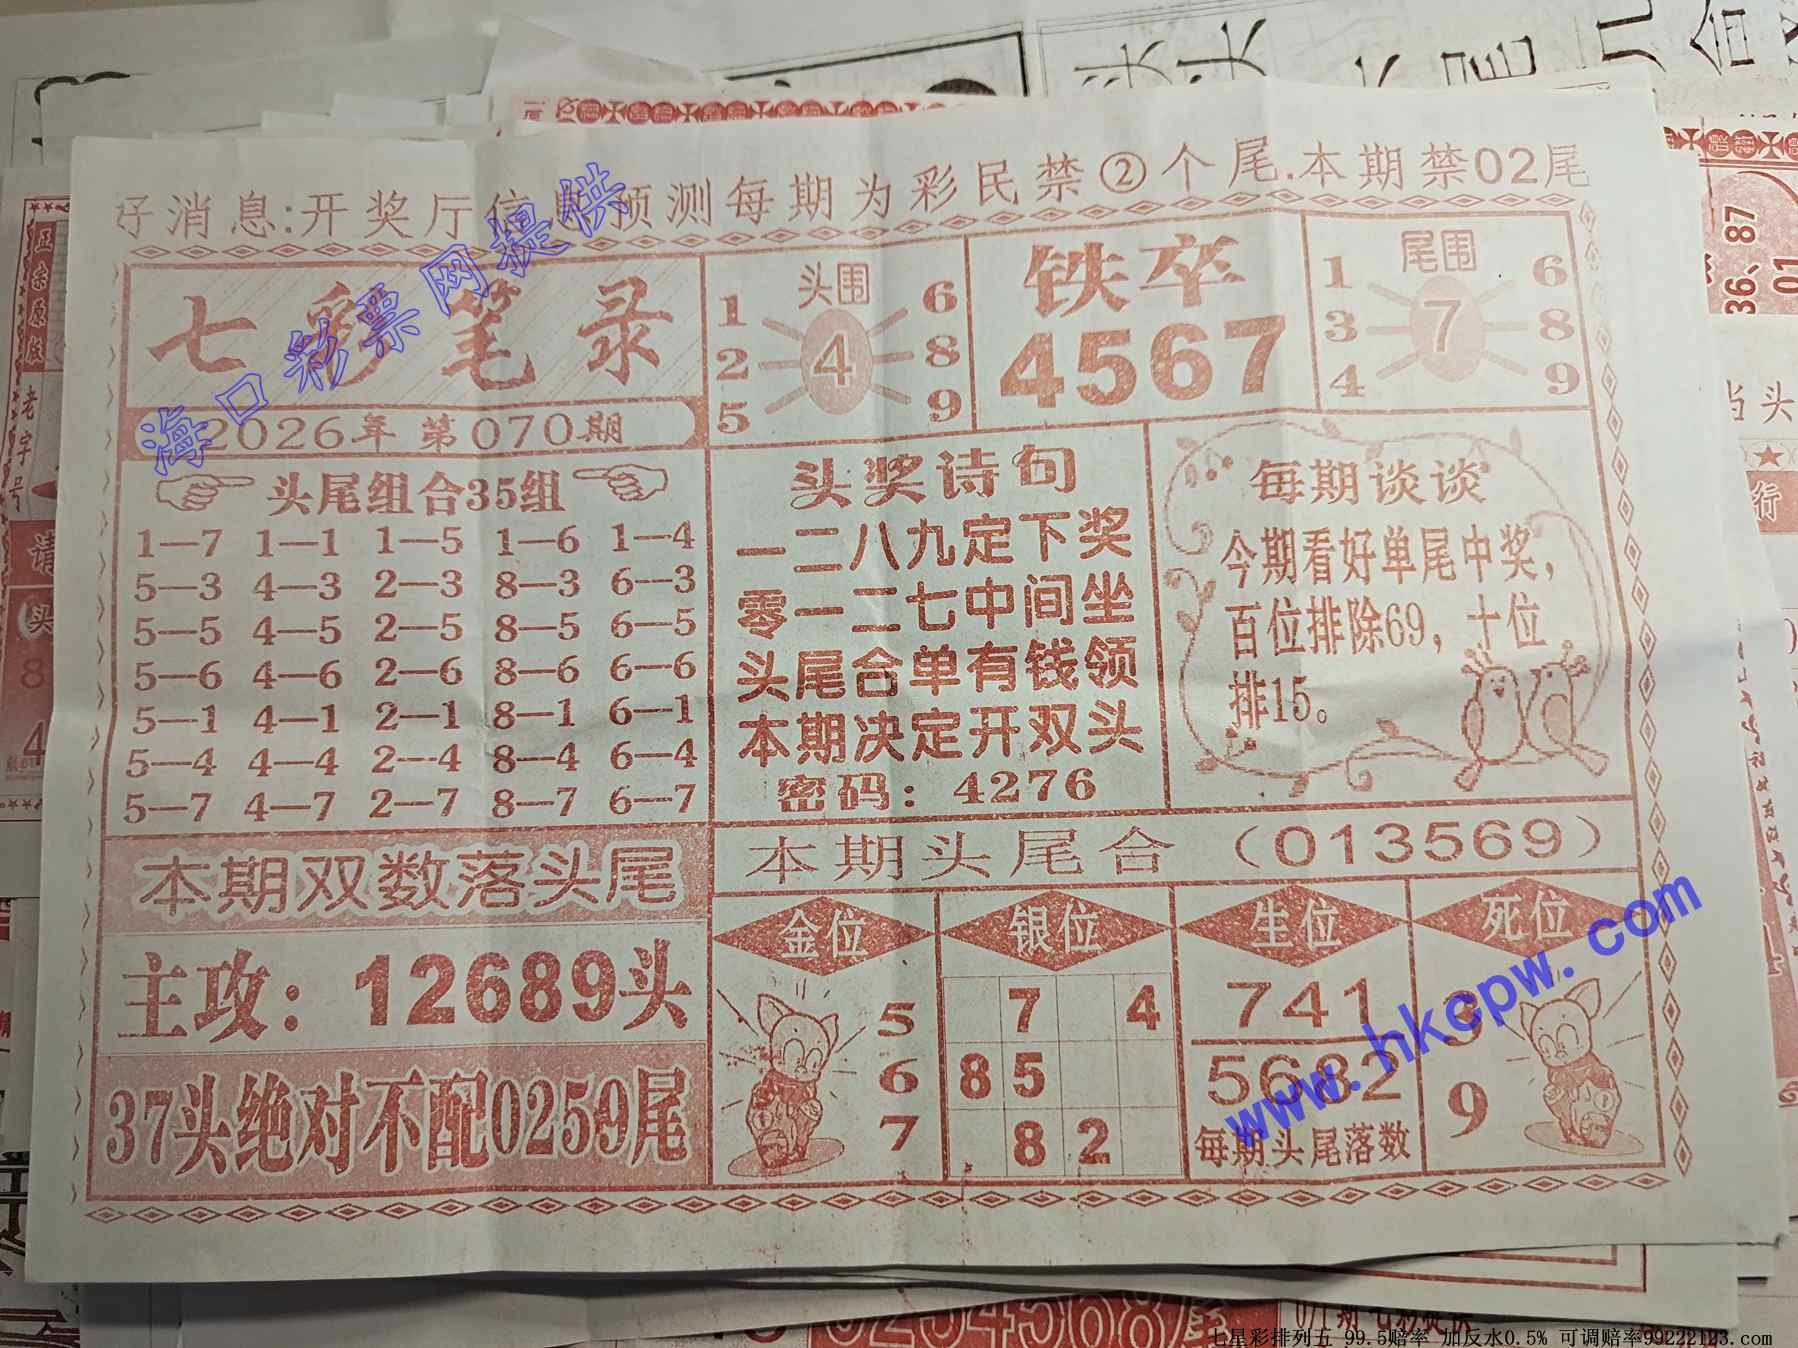 好消息:开奖厅信息预测每期为彩民禁②个尾.本期禁02尾
七彩笔录
2026年 第070期
头围
1 6
2 4 8
5 9
铁卒
4567
尾围
1 6
3 7 8
4 9
头尾组合35组
1—7 1—1 1—5 1—6 1—4
5—3 4—3 2—3 8—3 6—3
5—5 4—5 2—5 8—5 6—5
5—6 4—6 2—6 8—6 6—6
5—1 4—1 2—1 8—1 6—1
5—4 4—4 2—4 8—4 6—4
5—7 4—7 2—7 8—7 6—7
头奖诗句
一二八九定下奖
零一二七中间坐
头尾合单有钱领
本期决定开双头
密码：4276
每期谈谈
今期看好单尾中奖，
百位排除69，十位
排15。
本期双数落头尾
主攻：12689头
37头绝对不配0259尾
本期头尾合（013569）
金位
5
6
7
银位
7 4
8 5
8 2
生位
741
5682
每期头尾落数
死位
3
9
海口彩票网提供
www.hkcpw.com
正宗原版
老字号
请
头
8
4
36、87
01
当头
行
0234568尾
七星彩排列五 99.5赔率 加反水0.5% 可调赔率99222123.com